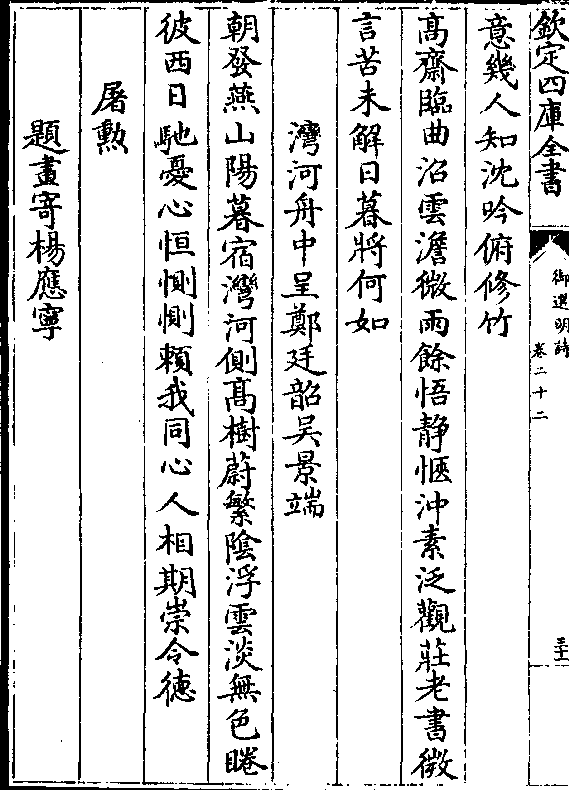 欽定四庫全書
御選明詩
卷二十二
三十一
意幾人知沈吟俯修竹
高齋臨曲沼雲澹微雨餘悟静愜沖素泛觀莊老書微
言苦未解日暮將何如
灣河舟中呈鄭廷韶吴景端
朝發燕山陽暮宿灣河側高樹蔚繁陰浮雲淡無色睠
彼西日馳憂心恒惻惻頼我同心人相期崇令徳
屠勲
題畫寄楊應寧